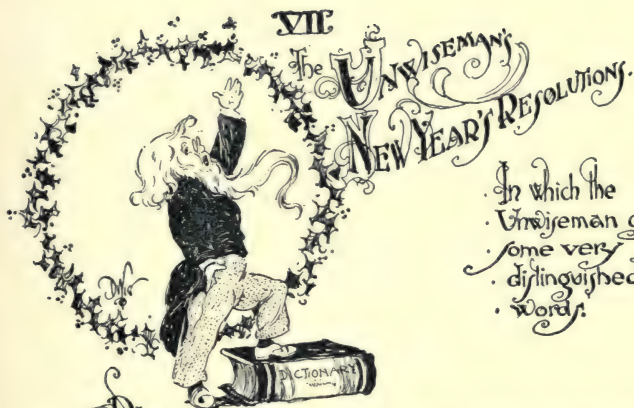 VII
The Unwiseman's
New Year's Resolutions.
In which the
Unwiseman
some very
distinguished
words.
DICTIONARY